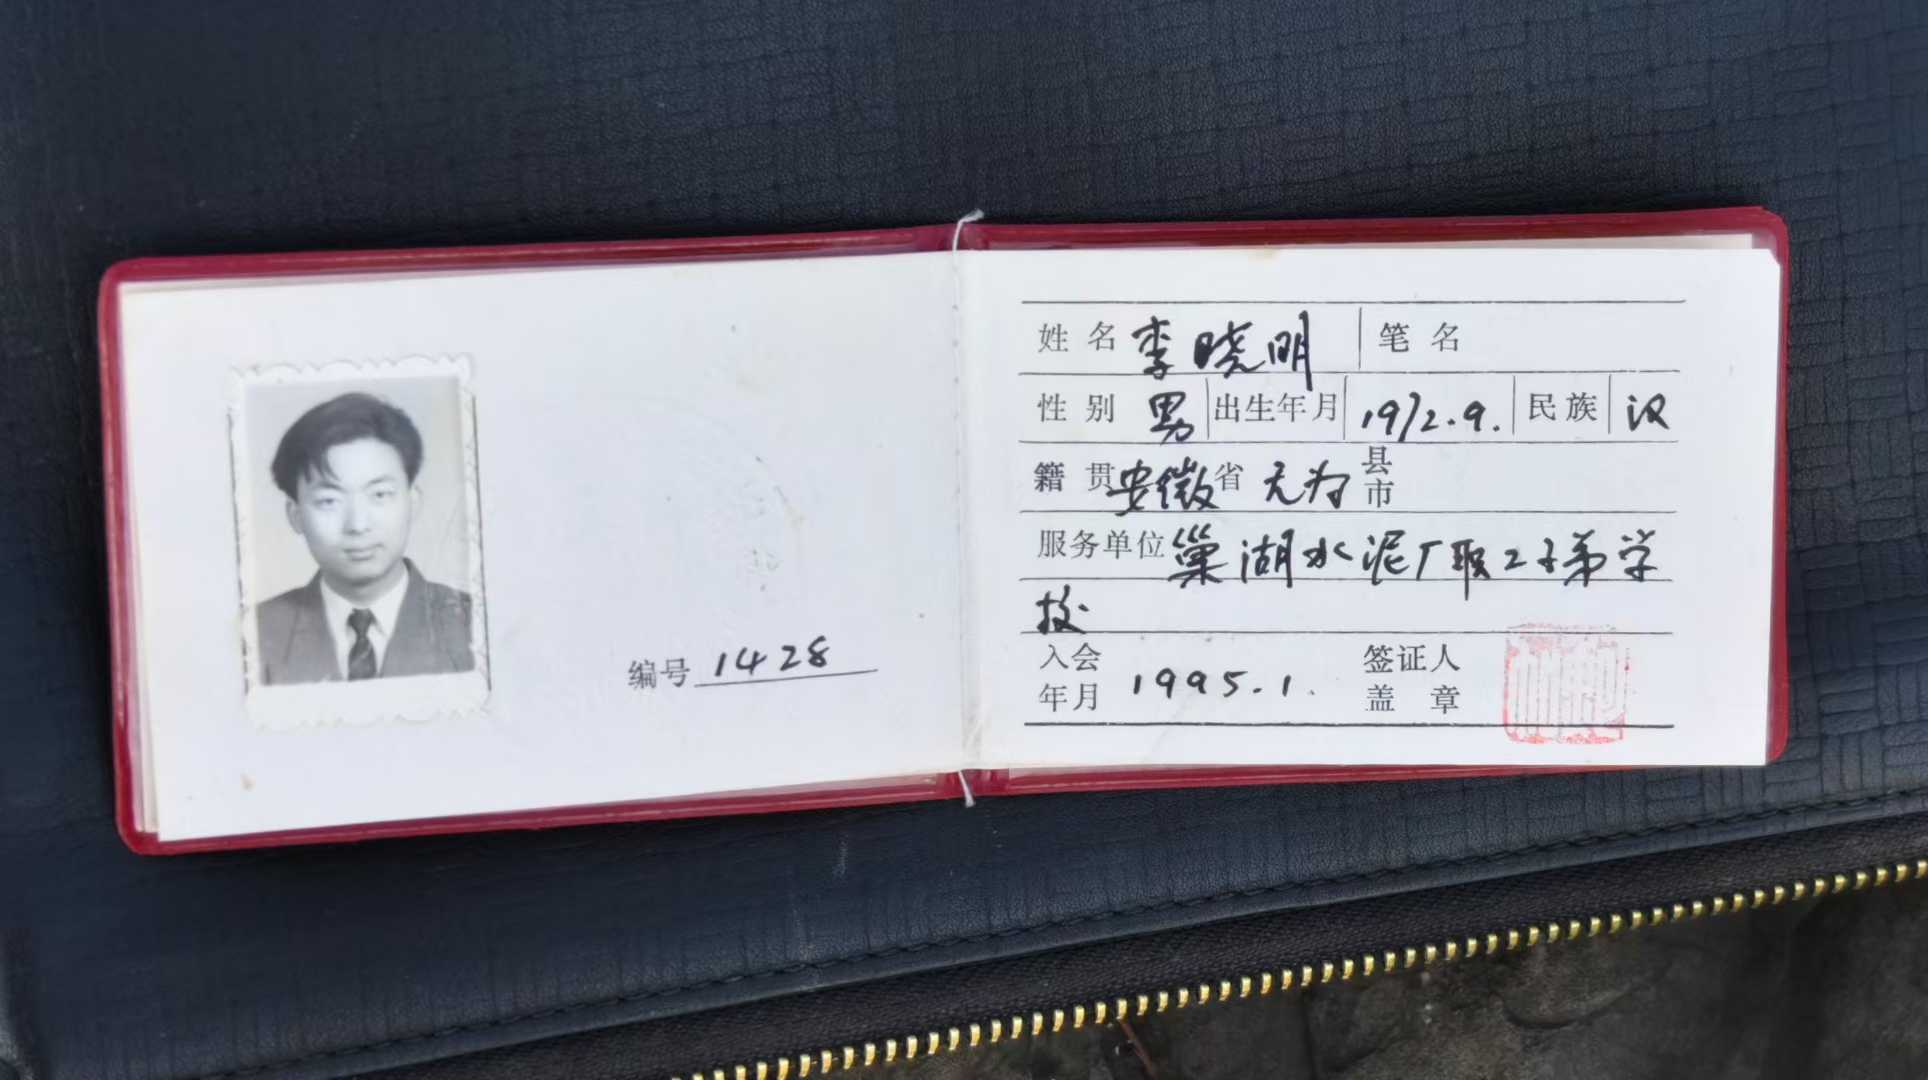 编号 1428
姓名 李晓明 笔名
性别 男 出生年月 1972.9. 民族 汉
籍贯 安徽省 无为 县市
服务单位 巢湖水泥厂职工子弟学
校
入会年月 1995.1. 签证人盖章